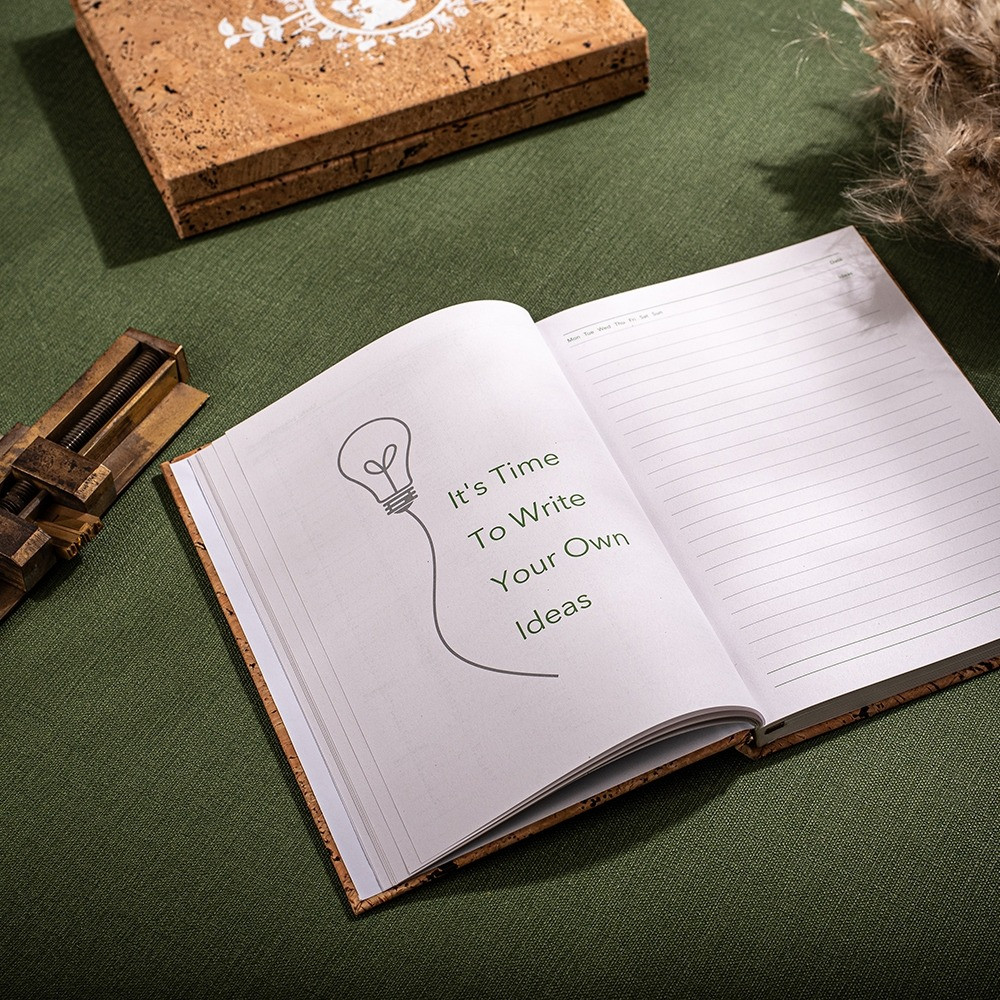 It's Time
To Write
Your Own
Ideas
Mon Tue Wed Thu Fri Sat Sun